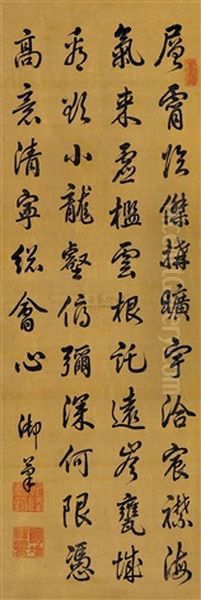 層霄臨傑搆曠宇洽宸襟海
氣来虛檻雲根託遠岑甕城
看欲小龍壑俯彌深何限憑
高意清寧總會心
御筆